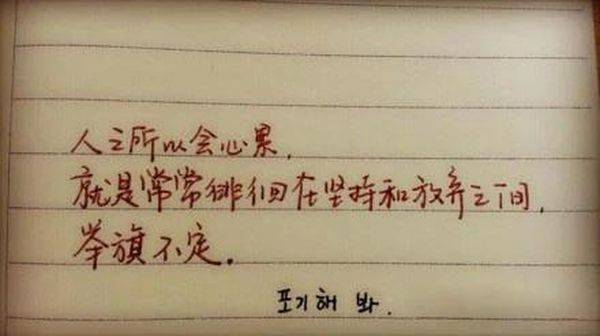 人之所以会心累,
就是常常徘徊在坚持和放弃之间,
举旗不定.
포기해 봐.